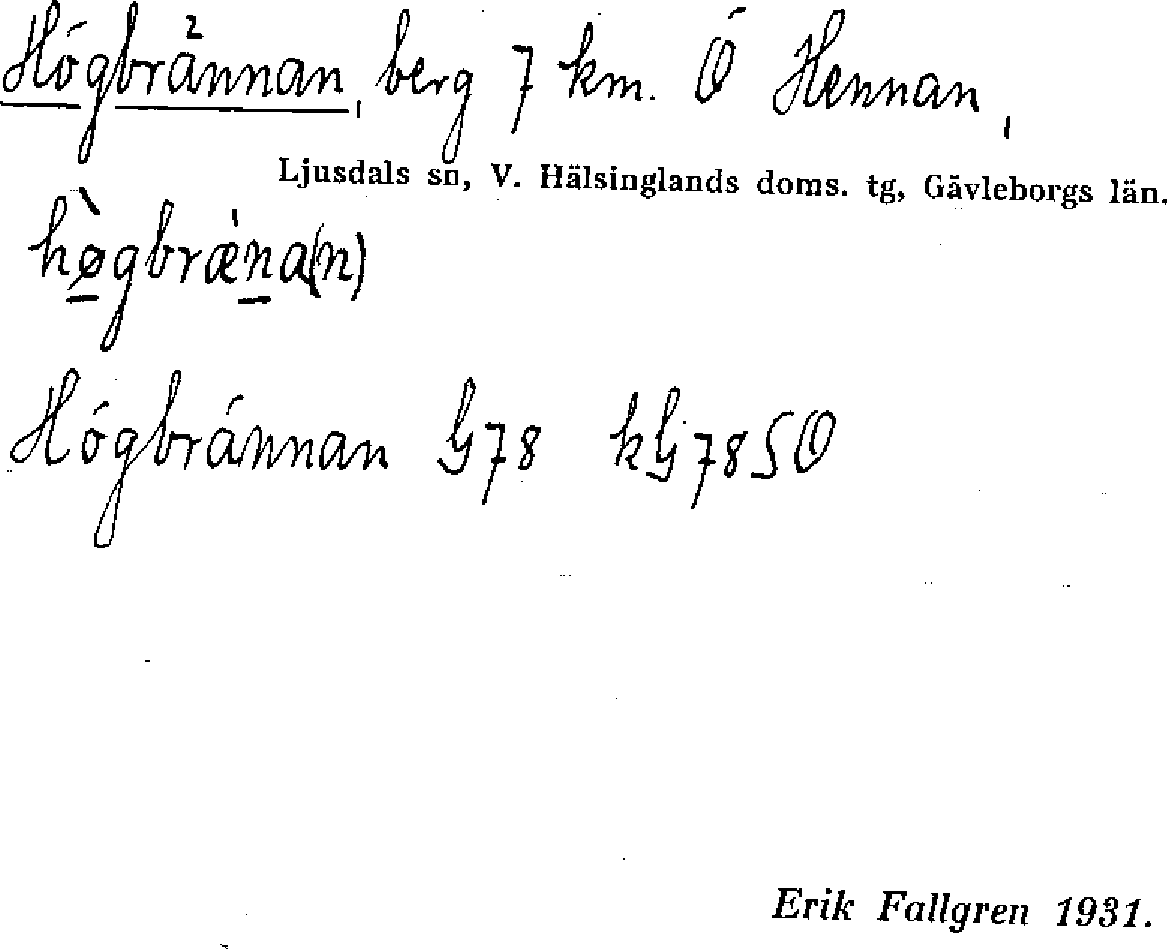 Högbrännan, berg 7 km. Ö Hennan,
Ljusdals sn, V. Hälsinglands doms. tg, Gävleborgs län.
hø̀gbræ̀na(n)
Högbrännan G78 kG78SO
Erik Fallgren 1931.